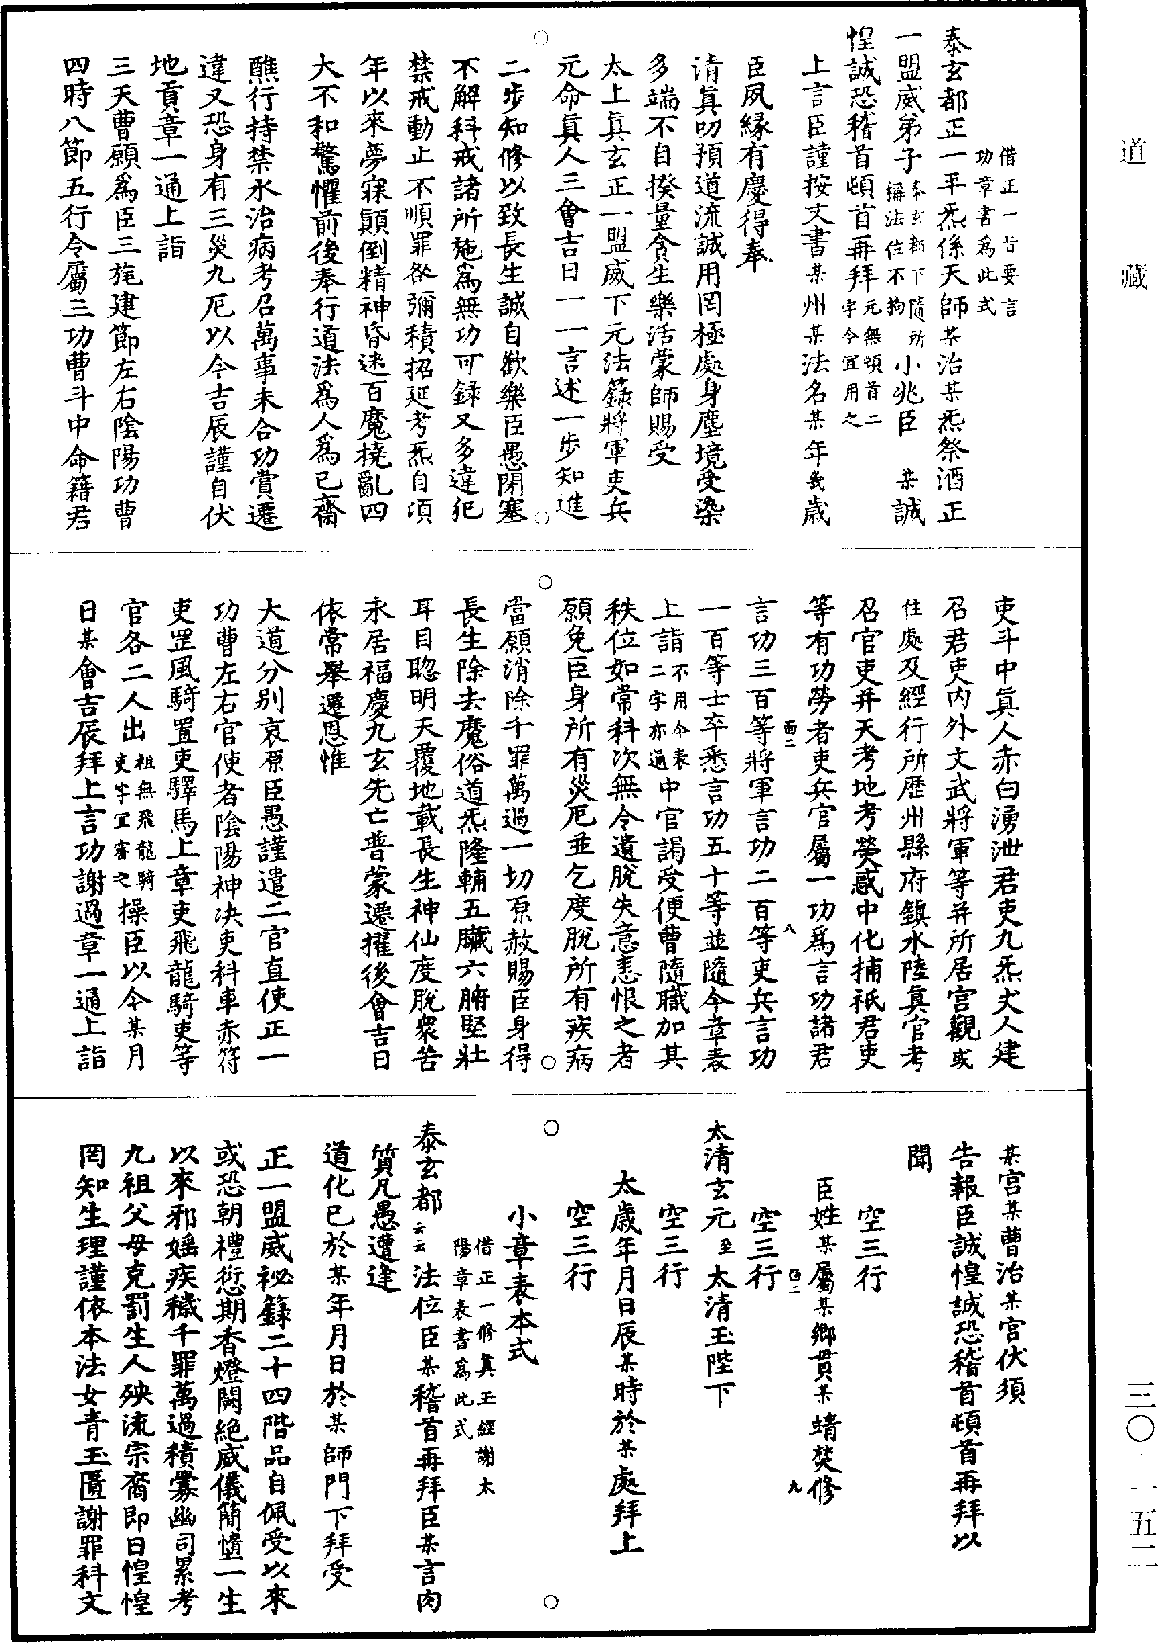 道藏
三〇·一五二
借正一旨要言
功章書為此式
泰玄都正一平炁係天師某治某炁祭酒正
一盟威弟子本玄都下隨所稱法位不拘小兆臣某誠
惶誠恐稽首頓首再拜元無頓首二字今宜用之
上言臣謹按文書某州某法名某年幾歲
臣夙緣有慶得奉
清真叨預道流誠用罔極處身塵境受染
多端不自揆量貪生樂活蒙師賜受
太上真玄正一盟威下元法籙將軍吏兵
元命真人三會吉日一一言述一步知進
二步知修以致長生誠自歡樂臣愚閉塞
不解科戒諸所施為無功可錄又多違犯
禁戒動止不順罪咎彌積招延考炁自頃
年以來夢寐顛倒精神昏迷百魔撓亂四
大不和驚懼前後奉行道法為人為己齋
醮行持禁水治病考召萬事未合功賞遷
違又恐身有三災九厄以今吉辰謹自伏
地貢章一通上詣
三天曹願為臣三旌建節左右陰陽功曹
四時八節五行令屬三功曹斗中命籍君
吏斗中真人赤白湧泄君吏九炁丈人建
召君吏內外文武將軍等并所居宮觀或
住處及經行所歷州縣府鎮水陸真官考
召官吏并天考地考熒惑中化捕祇君吏
等有功勞者吏兵官屬一功為言功諸君
言功三百等將軍言功二百等吏兵言功
一百等士卒悉言功五十等並隨今章表
上詣不用今表二字亦通中官謁受便曹隨職加其
秩位如常科次無令遺脫失意恚恨之者
願免臣身所有災厄並乞度脫所有疾病
當願消除千罪萬過一切原赦賜臣身得
長生除去魔俗道炁隆輔五臟六腑堅壯
耳目聰明天覆地載長生神仙度脫眾苦
永居福慶九玄先亡普蒙遷擢後會吉日
依常舉遷恩惟
大道分別哀原臣愚謹遣二官直使正一
功曹左右官使者陰陽神決吏科車赤符
吏罡風騎置吏驛馬上章吏飛龍騎吏等
官各二人出祖無飛龍騎吏字宜審之操臣以今某月
日某會吉辰拜上言功謝過章一通上詣
某宮某曹治某宮伏須
告報臣誠惶誠恐稽首頓首再拜以
聞
空三行
臣姓某屬某鄉貫某靖焚修
空三行
太清玄元至太清玉陛下
空三行
太歲年月日辰某時於某處拜上
空三行
小章表本式
借正一修真玉經謝太
陽章表書為此式
泰玄都云云法位臣某稽首再拜臣某言肉
質凡愚遭逢
道化已於某年月日於某師門下拜受
正一盟威祕籙二十四階品自佩受以來
或恐朝禮愆期香燈闕絕威儀簡惰一生
以來邪婬疾穢千罪萬過積釁幽司累考
九祖父母克罰生人殃流宗裔即日惶惶
罔知生理謹依本法女青玉匱謝罪科文